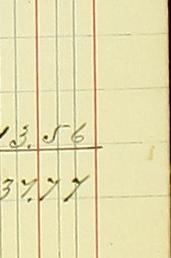 13.56
37.77